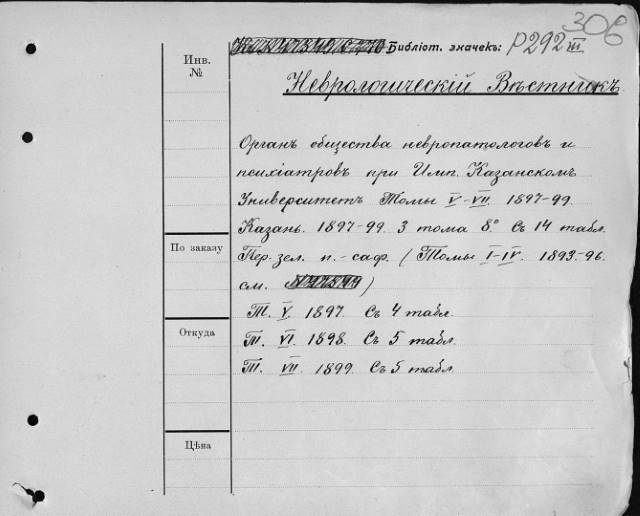 306
Библіот. значекъ: P292 III
Инв. №
Неврологическій Вѣстникъ
Органъ общества невропатологовъ и
психіатровъ при Имп. Казанскомъ
Университетѣ Томы V-VII. 1897-99.
Казань. 1897-99. 3 тома 8° Съ 14 табл.
По заказу
Пер. зел. п.-саф. (Томы I-IV. 1893-96.
см. )
Т. V. 1897. Съ 4 табл.
Откуда
Т. VI. 1898. Съ 5 табл.
Т. VII. 1899. Съ 5 табл.
Цѣна